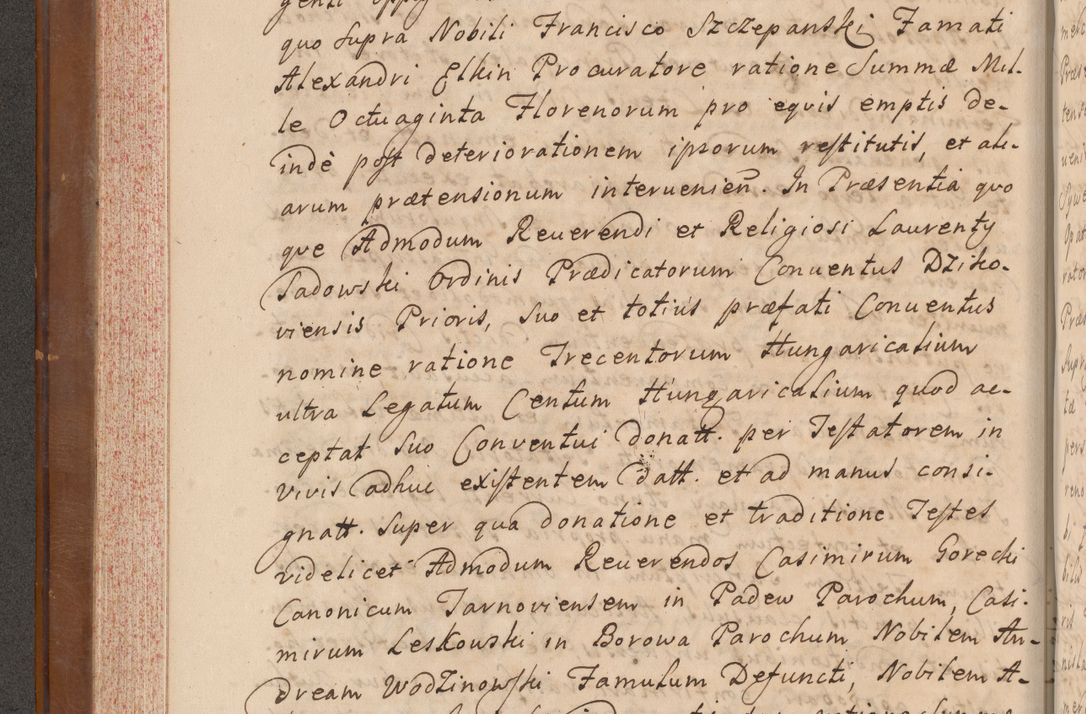 quo supra Nobili Francisco Szczepanski Famati
Alexandri Elkin Procuratore ratione Summæ Mil-
le Octuaginta Florenorum pro equis emptis de-
indè post deteriorationem ipsorum restitutis, et ali-
arum prætensionum interuenien. In Præsentia quo
que Admodum Reuerendi et Religiosi Laurenty
Sadowski Ordinis Prædicatorum Conuentus Dziko-
viensis Prioris, suo et totius præfati Conuentus
nomine ratione Trecentorum Hungaricalium
ultra Legatum Centum Hungaricalium quod ac-
ceptat suo Conventui donatt. per Testatorem in
vivis adhuc existentem datt. et ad manus consi-
gnatt. super qua donatione et traditione Testes
videlicet Admodum Reuerendos Casimirum Gorecki
Canonicum Tarnoviensem in Padew Parochum, Casi-
mirum Leskowski in Borowa Parochum Nobilem An-
dream Wodzinowski Famulum Defuncti, Nobilem A-